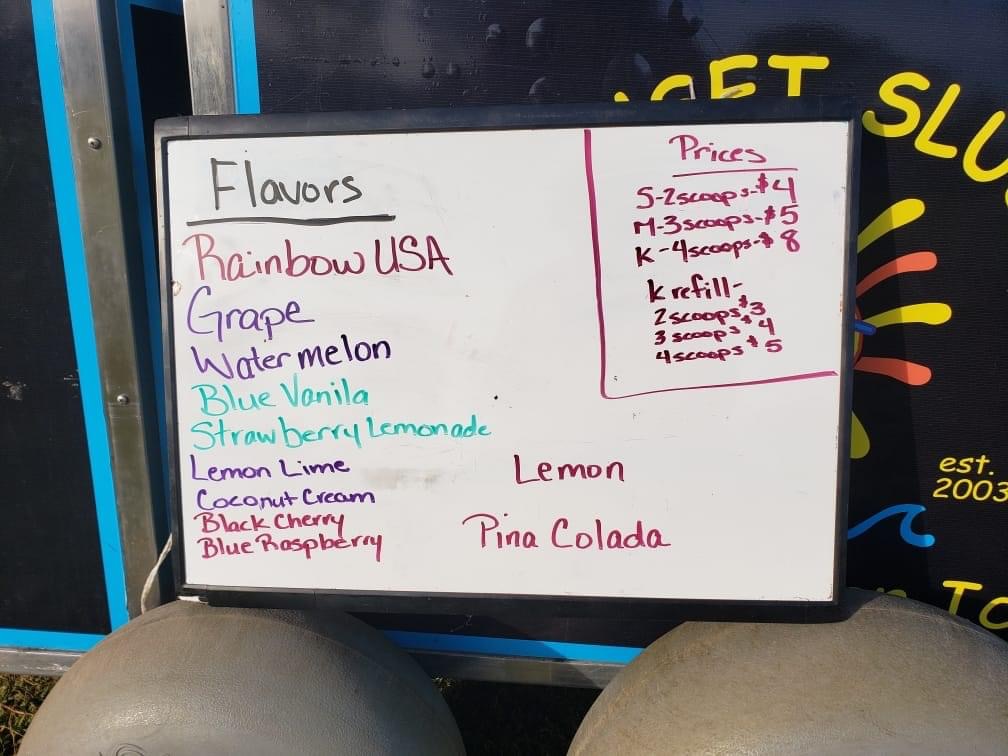 Flavors
Rainbow USA
Grape
Watermelon
Blue Vanila
Strawberry Lemonade
Lemon Lime
Coconut Cream
Black Cherry
Blue Raspberry
Lemon
Pina Colada
Prices
S-2scoops-$4
M-3scoops-$5
K-4scoops-$8
K refill-
2scoops $3
3 scoops $4
4scoops $5
est.
2003